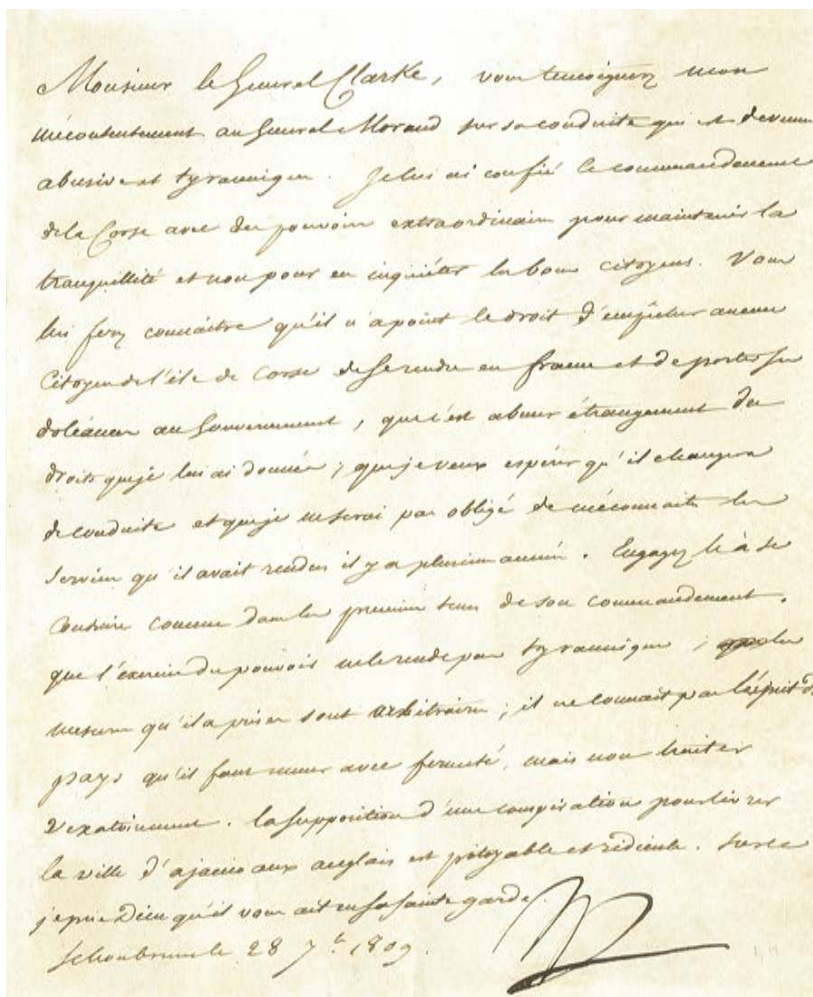 Monsieur le Général Clarke, vous témoignerez mon
mécontentement au Général Morand sur sa conduite qui est devenue
abusive et tyrannique. Je lui ai confié le commandement
de la Corse avec des pouvoirs extraordinaires pour maintenir la
tranquillité et non pour en inquiéter les bons citoyens. Vous
lui ferez connaître qu'il n'a point le droit d'empêcher aucun
Citoyen de l'île de Corse de se rendre en france et de porter ses
doléances au Gouvernement, que c'est abuser étrangement des
droits que je lui ai donnés; que je veux espérer qu'il changera
de conduite et que je ne serai pas obligé de méconnaître les
services qu'il avait rendus il y a plusieurs années. Engagez le à se
conduire comme dans les premiers tems de son commandement.
que l'exercice du pouvoir ne le rende pas tyrannique; les
mesures qu'il a prises sont arbitraires; il ne connait pas l'esprit du
pays qu'il faut mener avec fermeté, mais non traiter
vexatoirement. la supposition d'une conspiration pour livrer
la ville d'ajaccio aux anglais est pitoyable et ridicule. Sur ce
je prie Dieu qu'il vous ait en sa sainte garde.
Schonbrunn le 28 7bre 1809.